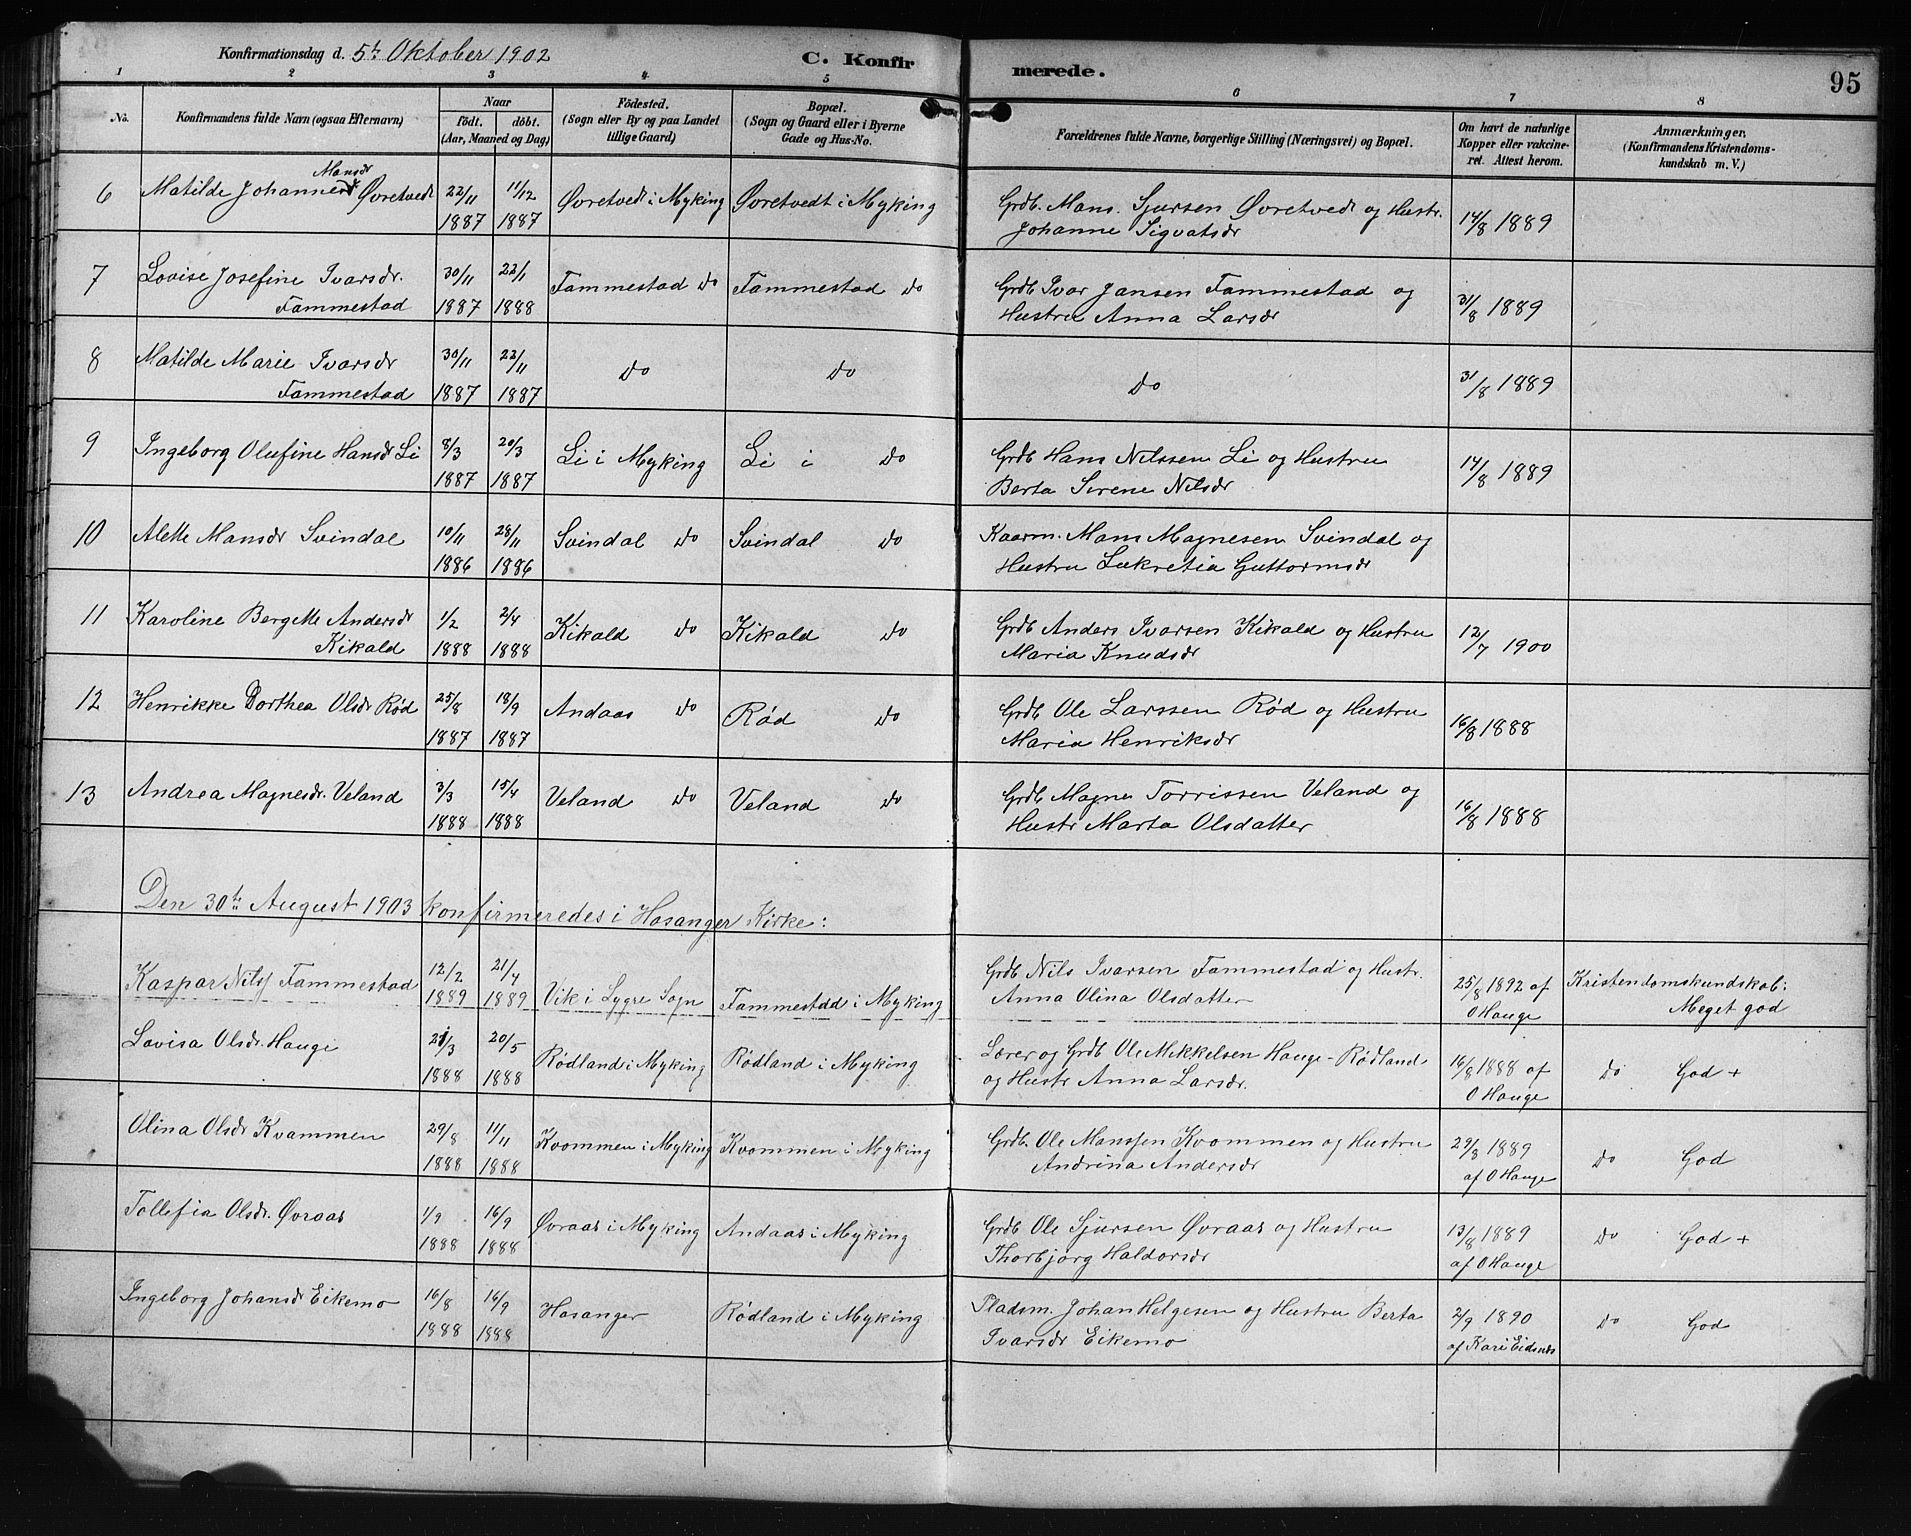 Konfirmationsdag d. 5te Oktober 1902 C. Konfirmerede. 95
1 2 3 4 5 6 7 8
No. Konfirmandens fulde Navn (ogsaa Efternavn) Naar födt. döbt. (Aar, Maaned og Dag) Födested. (Sogn eller By og paa Landet tillige Gaard) Bopæl. (Sogn og Gaard eller i Byerne Gade og Hus-No. Forældrenes fulde Navne, borgerlige Stilling (Næringsvei) og Bopæl. Om havt de naturlige Kopper eller vakcineret. Attest herom. Anmærkninger. (Konfirmandens Kristendomskundskab m. V.)
Mansdr
6 Matilde Johanne Øvretvedt 22/11 1887 11/12 1887 Øvretvedt i Myking Øvretvedt i Myking Grdb. Mans Sjursen Øvretvedt og Hustr. Johanne Sigvatsdr 14/8 1889
7 Lovise Josefine Ivarsdr. Fammestad 30/11 1887 22/1 1888 Fammestad do Fammestad do Grdb Ivar Jansen Fammestad og Hustru Anna Larsdr 31/8 1889
8 Matilde Marie Ivarsdr Fammestad 30/11 1887 22/11 1887 do do do 31/8 1889
9 Ingeborg Olufine Hansdr Li 8/3 1887 20/3 1887 Li i Myking Li i do Grdb Hans Nilssen Li og Hustru Berta Serene Nilsdr 14/8 1889
10 Alette Mansdr Svindal 10/11 1886 28/11 1886 Svindal do Svindal do Kaarm. Mans Magnesen Svindal og Hustru Lukretia Guttormsdr
11 Karoline Bergette Andersdr Kikald 1/2 1888 2/4 1888 Kikald do Kikald do Grdb Anders Ivarsen Kikald og Hustru Maria Knudsdr 12/7 1900
12 Henrikke Dorthea Olsdr Rød 25/8 1887 18/9 1887 Andaas do Rød do Grdb Ole Larssen Rød og Hustru Maria Henriksdr 16/8 1888
13 Andrea Magnesdr. Veland 3/3 1888 15/4 1888 Veland do Veland do Grdb Magne Torrissen Veland og Hustr Marta Olsdatter 16/8 1888
Den 30te August 1903 konfirmeredes i Hosanger Kirke:
Kaspar Nilss Fammestad 12/2 1889 21/4 1889 Vik i Lygre Sogn Fammestad i Myking Grdb Nils Ivarsen Fammestad og Hustr. Anna Olina Olsdatter 25/8 1892 af O Hauge Kristendomskundskab: Meget god
Lovisa Olsdr. Hauge 21/3 1888 20/5 1888 Rødland i Myking Rødland i Myking Lærer og Grdb Ole Mikkelsen Hauge-Rødland og Hustr Anna Larsdr. 16/8 1888 af O Hauge do God +
Olina Olsdr Kvammen 29/8 1888 11/11 1888 Kvommen i Myking Kvommen i Myking Grdb. Ole Manssen Kvommen og Hustru Andrina Andersdr 29/8 1889 af O Hauge do God
Tollefia Olsdr. Øvraas 1/9 1888 16/9 1888 Øvraas i Myking Andaas i Myking Grdb Ole Sjursen Øvraas og Hustru Thorbjørg Haldorsdr 13/8 1889 af O Hauge do God +
Ingeborg Johansdr Eikemo 16/8 1888 16/9 1888 Hosanger Rødland i Myking Pladsm. Johan Helgesen og Hustru Berta Ivarsdr Eikemo 2/9 1890 af Kari Eidsnes do God